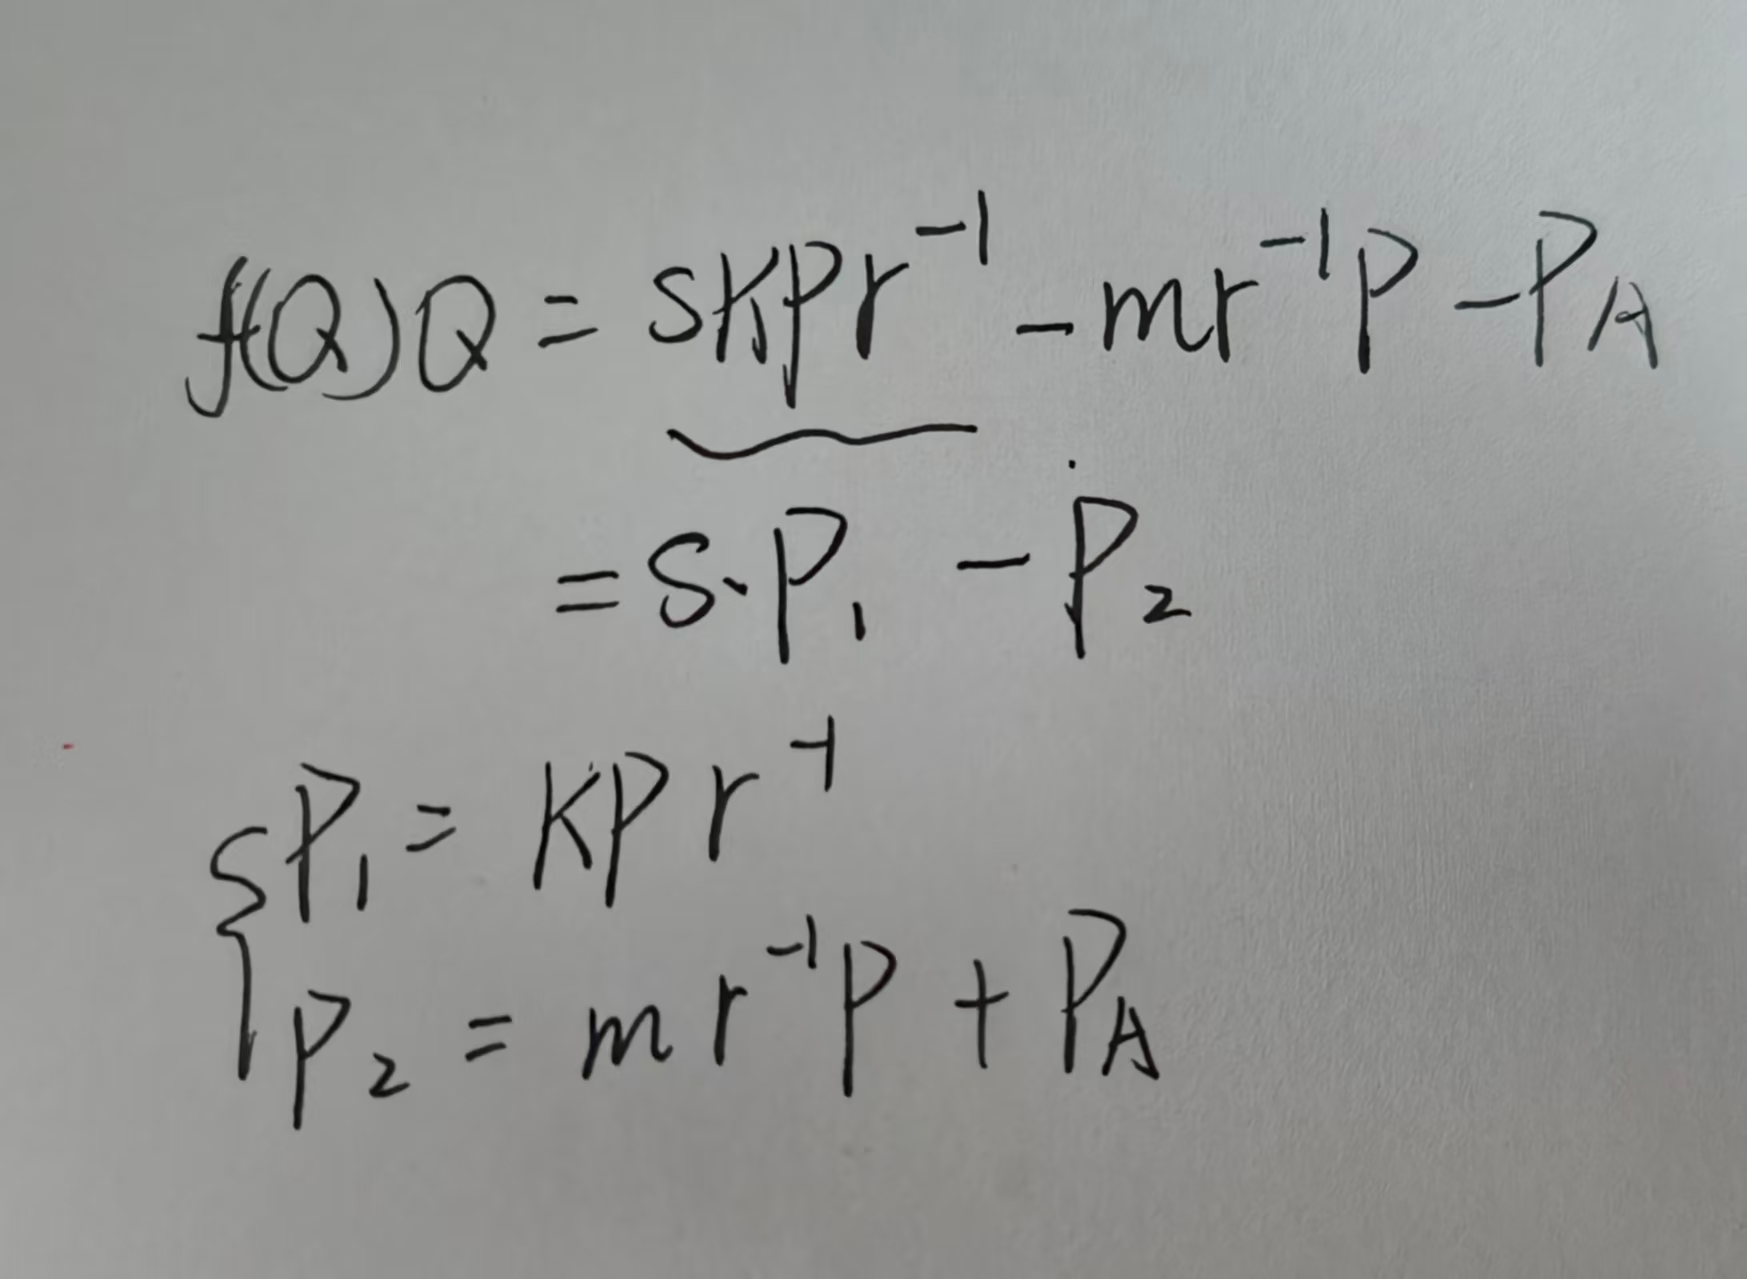 f(Q)Q = SKPr⁻¹ - mr⁻¹P - P_A
= S·P₁ - P₂
{ P₁ = KPr⁻¹
P₂ = mr⁻¹P + P_A